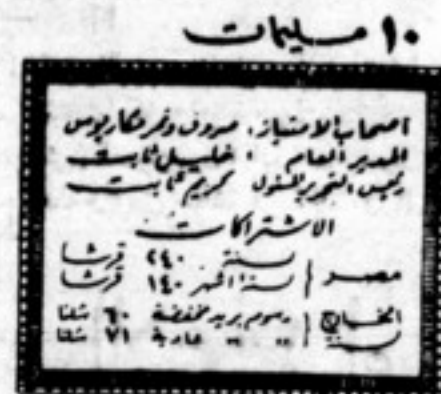 ١٠ مليمات
اصحاب الامتياز: صروف ونمر ومكاريوس
المدير العام : خليل ثابت
رئيس التحرير المسئول كريم ثابت
الاشتراكات
مصر سنة ٢٤٠ قرشا
١٤٠ قرشا
الخارج رسوم بريد مخفضة ٦٠ شلنا
سنة " " عادية ٧١ شلنا